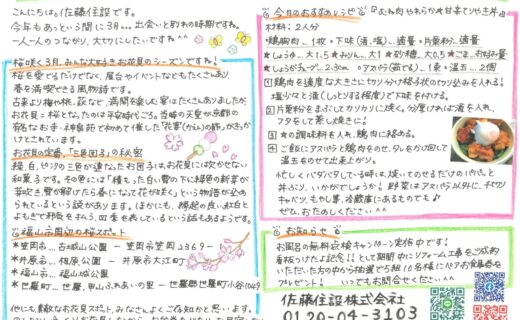 こんにちは。佐藤住設です。
今年もあっという間に3月…出会いと別れの時期ですね。
一人一人のつながり、大切にしたいですね^^
桜咲く3月、みんな大好きお花見のシーズンですね!
桜を愛でるだけでなく、屋台やイベントなどもたくさんあり
春を満喫できる風物詩です。
古来より梅や桃、萩など、満開を愛しむ宴はたくさんありましたが
お花見=桜となったのは平安時代ごろ。当時の天皇が京都の
有名なお寺・神泉苑で初めて催した「花宴(かえん)の節」がきっか
けとされています。
お花見の定番、「三色団子」の秘密
緑、白、ピンクの三色が連なったお団子は、お花見には欠かせない
和菓子です。その色には「積もった白い雪の下に緑色の新芽が
芽吹き、雪が解けたら春になって花が咲く」という物語が込め
られているという説があります。ほかにも、縁起の良い紅白と
よもぎで邪気をはらう、四季を表しているという話もあるようです。
福山市周辺の桜スポット
*笠岡市…古城山公園 - 笠岡市笠岡2369-
*井原市…相原公園 - 井原市大江町
*福山市…福山城公園
*世羅町…世羅甲山ふれあいの里 - 世羅郡世羅町小谷1049
他にも、素敵なお花見スポット、みなさんよくご存知かと思います。
今日のおすすめレシピ 『むね肉やわらか★甘辛てりやき丼』
材料:2人分
*鶏胸肉…1枚 *下味(酒、塩)…適量 *片栗粉…適量
*しょうゆ…大1.5 *みりん…大1 *砂糖…大0.5 *ごま…お好み量
*しょうがチューブ…2~3cm *アスパラ(茹でる)…1束 *温玉…2個
① 鶏肉を適度な大きさに切り分け格子状の切り込みを入れる!
塩少々と酒(しっとりする程度)で下味を付ける。
② 片栗粉をまぶしてカリカリに焼く。分厚ければ酒を入れ、
フタをして蒸し焼きに!
③ *の調味料を入れ、鶏肉に絡める。
④ ご飯にアスパラと鶏肉をのせ、タレをかけ回して
温玉をのせて出来上がり。
忙しくバタバタしている時は、焼いてのせるだけのパパっと
丼ぶり、いかがでしょうか。野菜はアスパラ以外に、千切り
キャベツ、もやし等、冷蔵庫にあるものでも♪
ぜひ、おためしください^^
お知らせ
お風呂の無料点検キャンペーン実施中です!
看板うつたよ記念!!として期間中リフォーム工事をご成約
いただいた方の中から抽選で5組10名様にペアお食事券を
プレゼント! いつでもお問合せください^^
佐藤住設株式会社
0120-04-3103